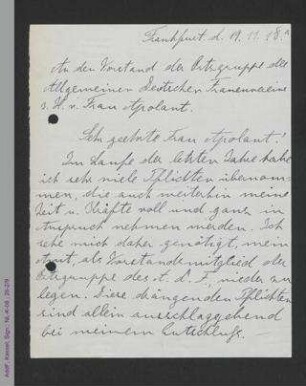 Frankfurt d. 19. 11. 18.
An den Vorstand der Ortsgruppe des
Allgemeinen Deutschen Frauenvereins
z. H. v. Frau Apolant.
Sehr geehrte Frau Apolant!
Im Laufe der letzten Jahre habe
ich sehr viele Pflichten übernom-
men, die auch weiterhin meine
Zeit u. Kräfte voll und ganz in
Anspruch nehmen werden. Ich
sehe mich daher genötigt, mein
Amt, als Vorstandsmitglied der
Ortsgruppe des A. D. F. nieder zu
legen. Diese drängenden Pflichten
sind allein ausschlaggebend
bei meinem Entschluß.